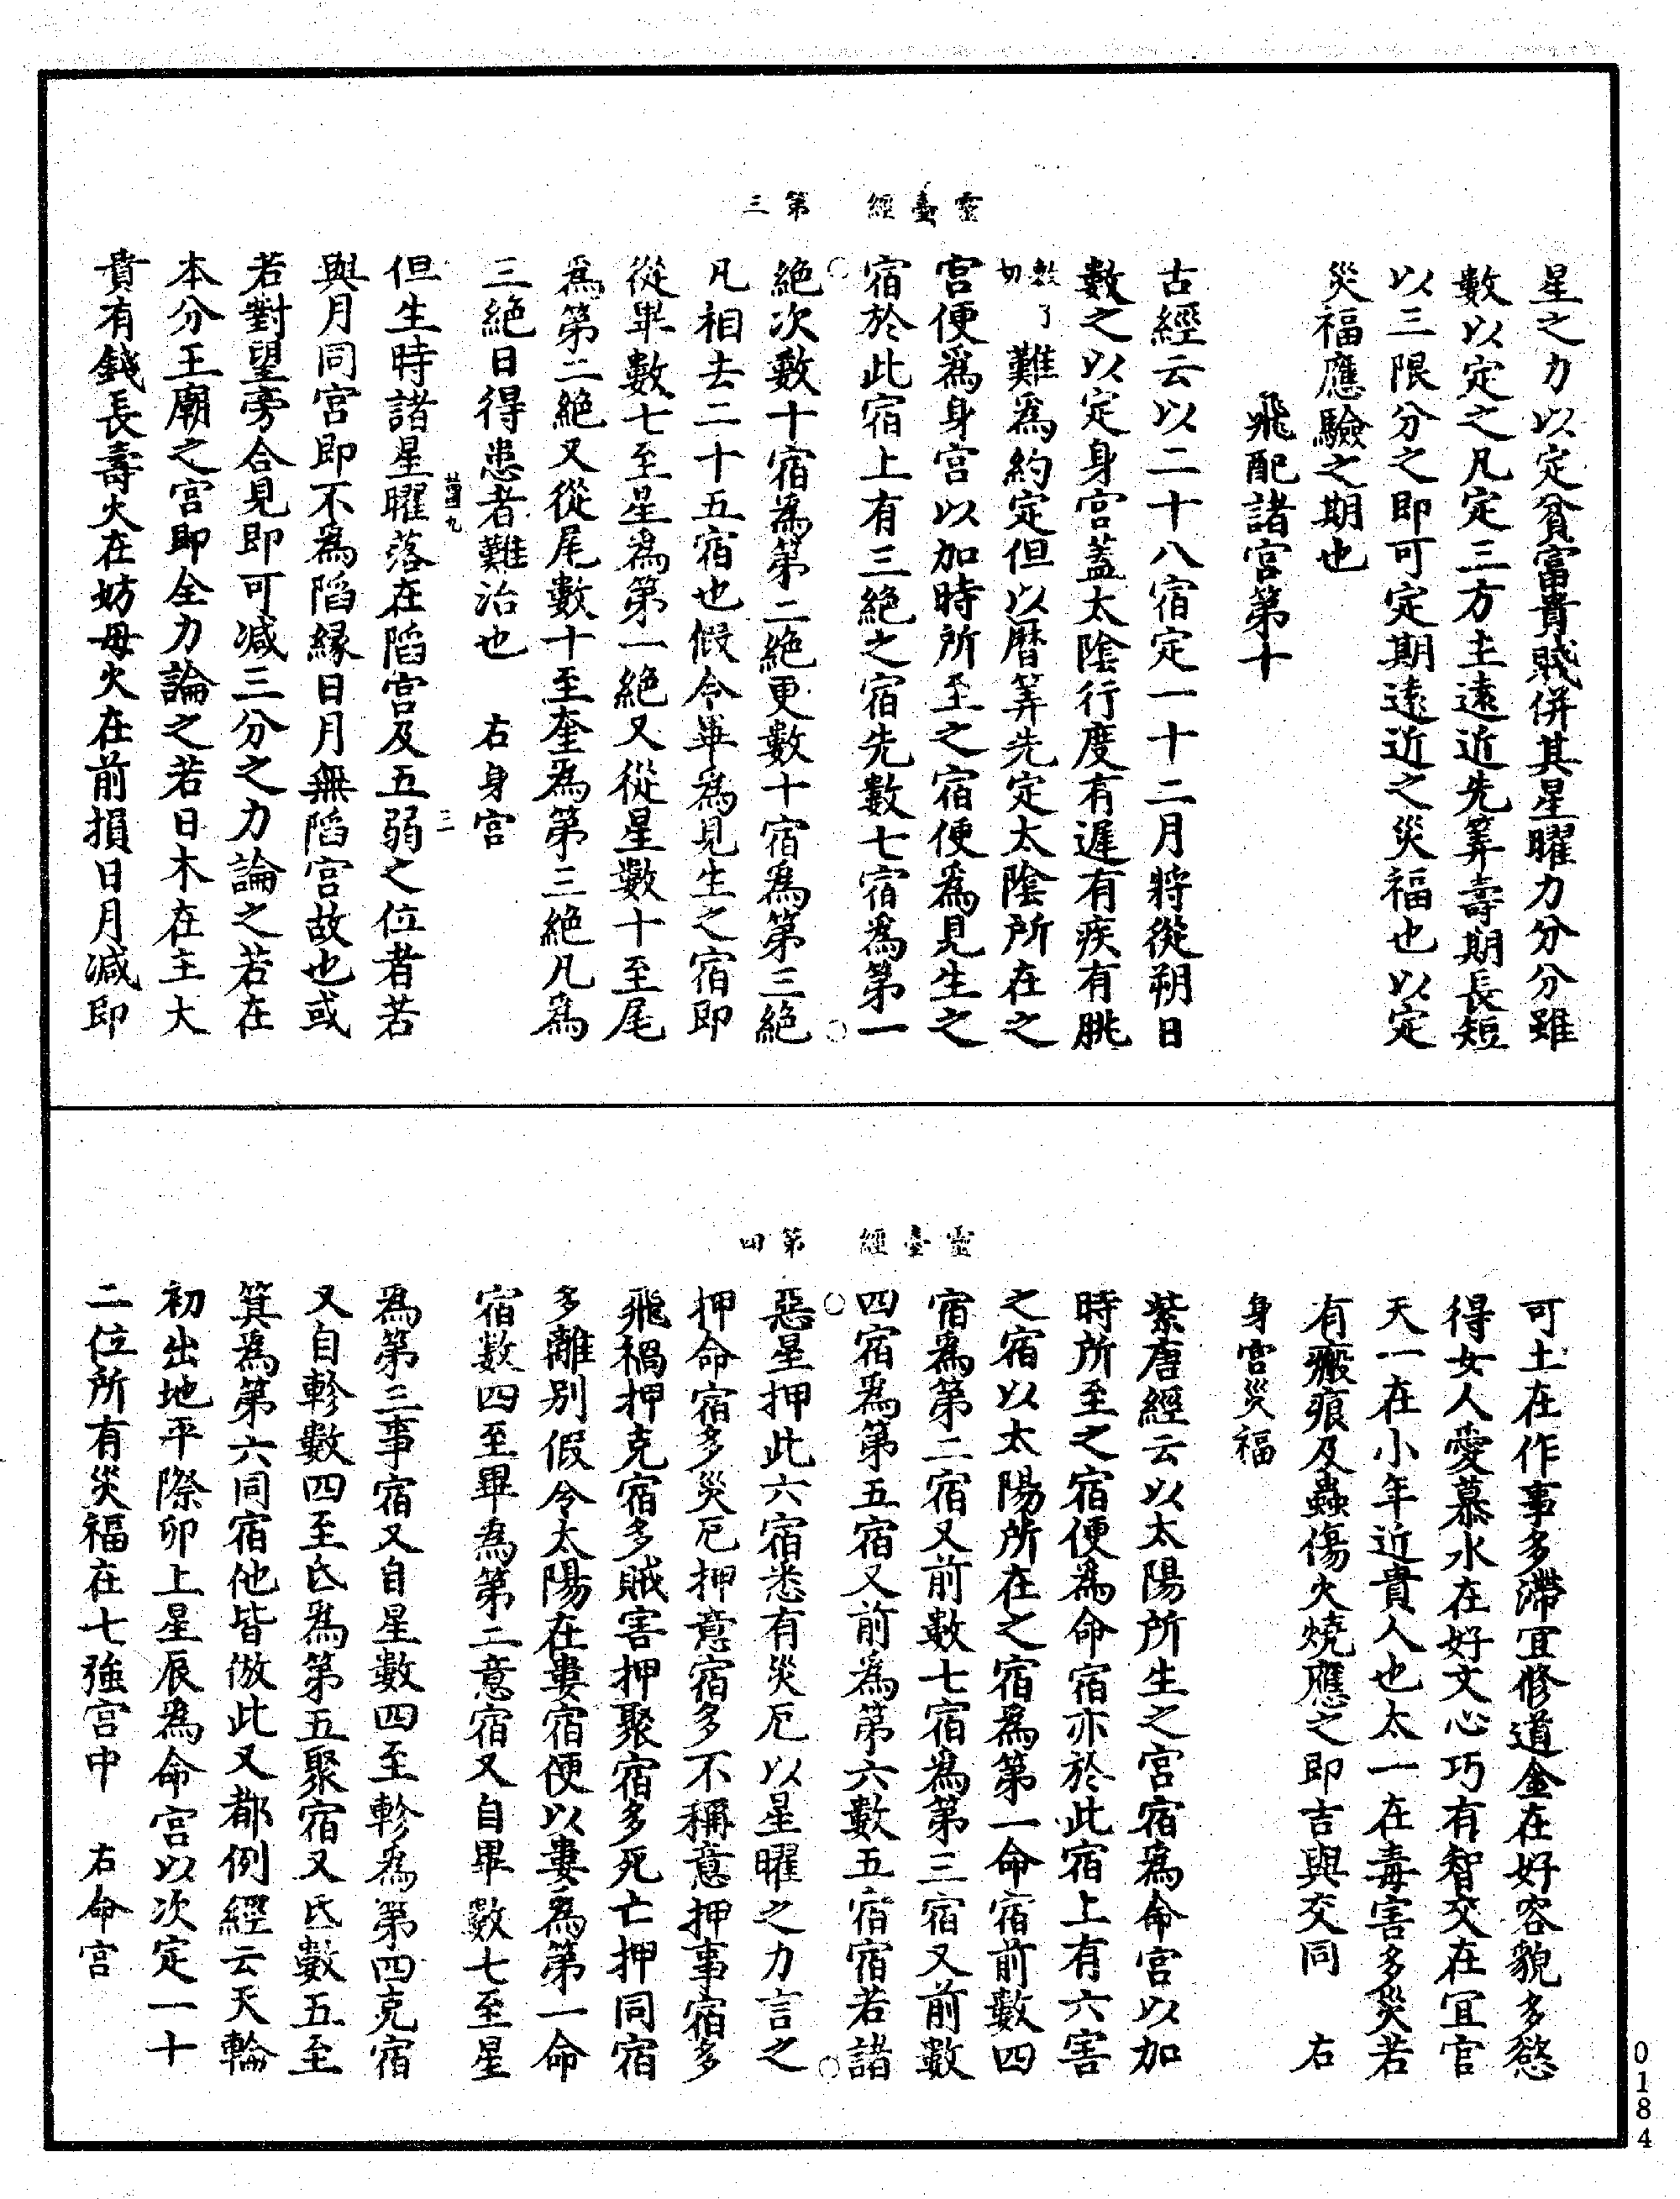 靈臺經　第三
星之力以定貧富貴賤併其星曜力分分雖
數以定之凡定三方主遠近先筭壽期長短
以三限分之即可定期遠近之災福也以定
災福應驗之期也
飛配諸宮第十
古經云以二十八宿定一十二月將從朔日
數之以定身宮蓋太陰行度有遲有疾有朓
難為約定但以曆筭先定太陰所在之
宮便為身宮以加時所至之宿便為見生之
宿於此宿上有三絕之宿先數七宿為第一
絕次數十宿為第二絕更數十宿為第三絕
凡相去二十五宿也假令畢為見生之宿即
從畢數七至星為第一絕又從星數十至尾
為第二絕又從尾數十至奎為第三絕凡為
三絕日得患者難治也　右身宮
但生時諸星曜落在陷宮及五弱之位者若
與月同宮即不為陷緣日月無陷宮故也或
若對望旁合見即可减三分之力論之若在
本分王廟之宮即全力論之若日木在主大
貴有錢長壽火在妨母火在前損日月减即
三
靈臺經　第四
可土在作事多滯宜修道金在好容貌多慾
得女人愛慕水在好文心巧有智交在宜官
天一在小年近貴人也太一在毒害多災若
有瘢痕及蟲傷火燒應之即吉與交同　右
身宮災福
紫唐經云以太陽所生之宮宿為命宮以加
時所至之宿便為命宿亦於此宿上有六害
之宿以太陽所在之宿為第一命宿前數四
宿為第二宿又前數七宿為第三宿又前數
四宿為第五宿又前為第六數五宿宿若諸
惡星押此六宿悉有災厄以星曜之力言之
押命宿多災厄押意宿多不稱意押事宿多
飛禍押克宿多賊害押聚宿多死亡押同宿
多離别假令太陽在婁宿便以婁為第一命
宿數四至畢為第二意宿又自畢數七至星
為第三事宿又自星數四至軫為第四克宿
又自軫數四至氐為第五聚宿又氐數五至
箕為第六同宿他皆倣此又都例經云天輪
初出地平際卯上星辰為命宮以次定一十
二位所有災福在七強宮中　右命宮
0184